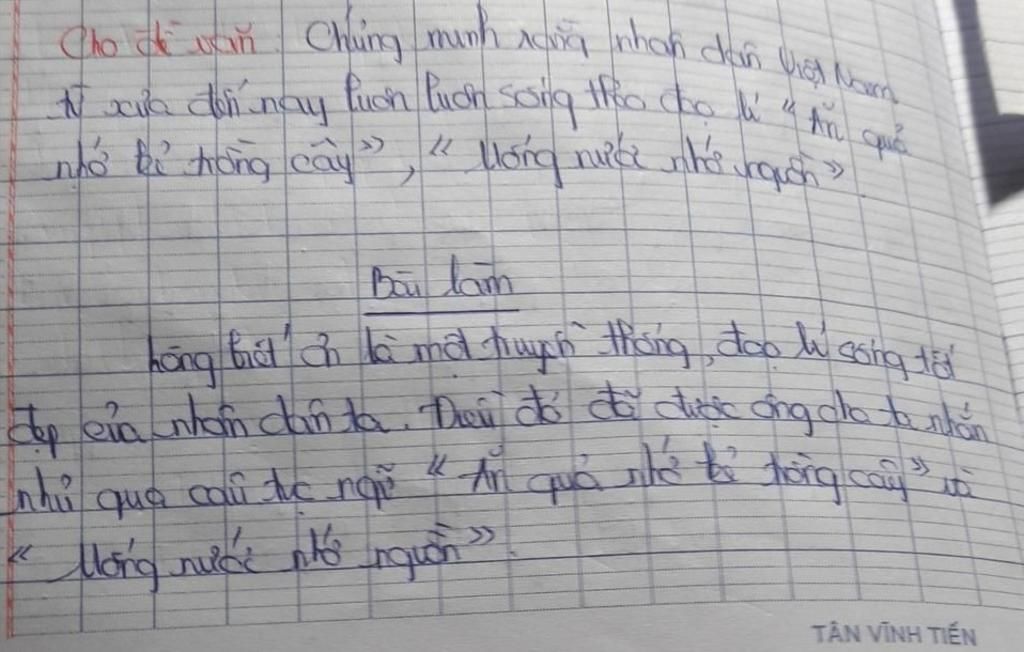 Cho đề văn Chứng minh rằng nhân dân Việt Nam
từ xưa đến nay luôn luôn sống theo đạo lí " Ăn quả
nhớ kẻ trồng cây ", " Uống nước nhớ nguồn "
Bài làm
Lòng biết ơn là một truyền thống, đạo lí sống tốt
đẹp của nhân dân ta. Điều đó đã được ông cha ta nhắn
nhủ qua câu tục ngữ " Ăn quả nhớ kẻ trồng cây " và
" Uống nước nhớ nguồn ".
TÂN VĨNH TIẾN